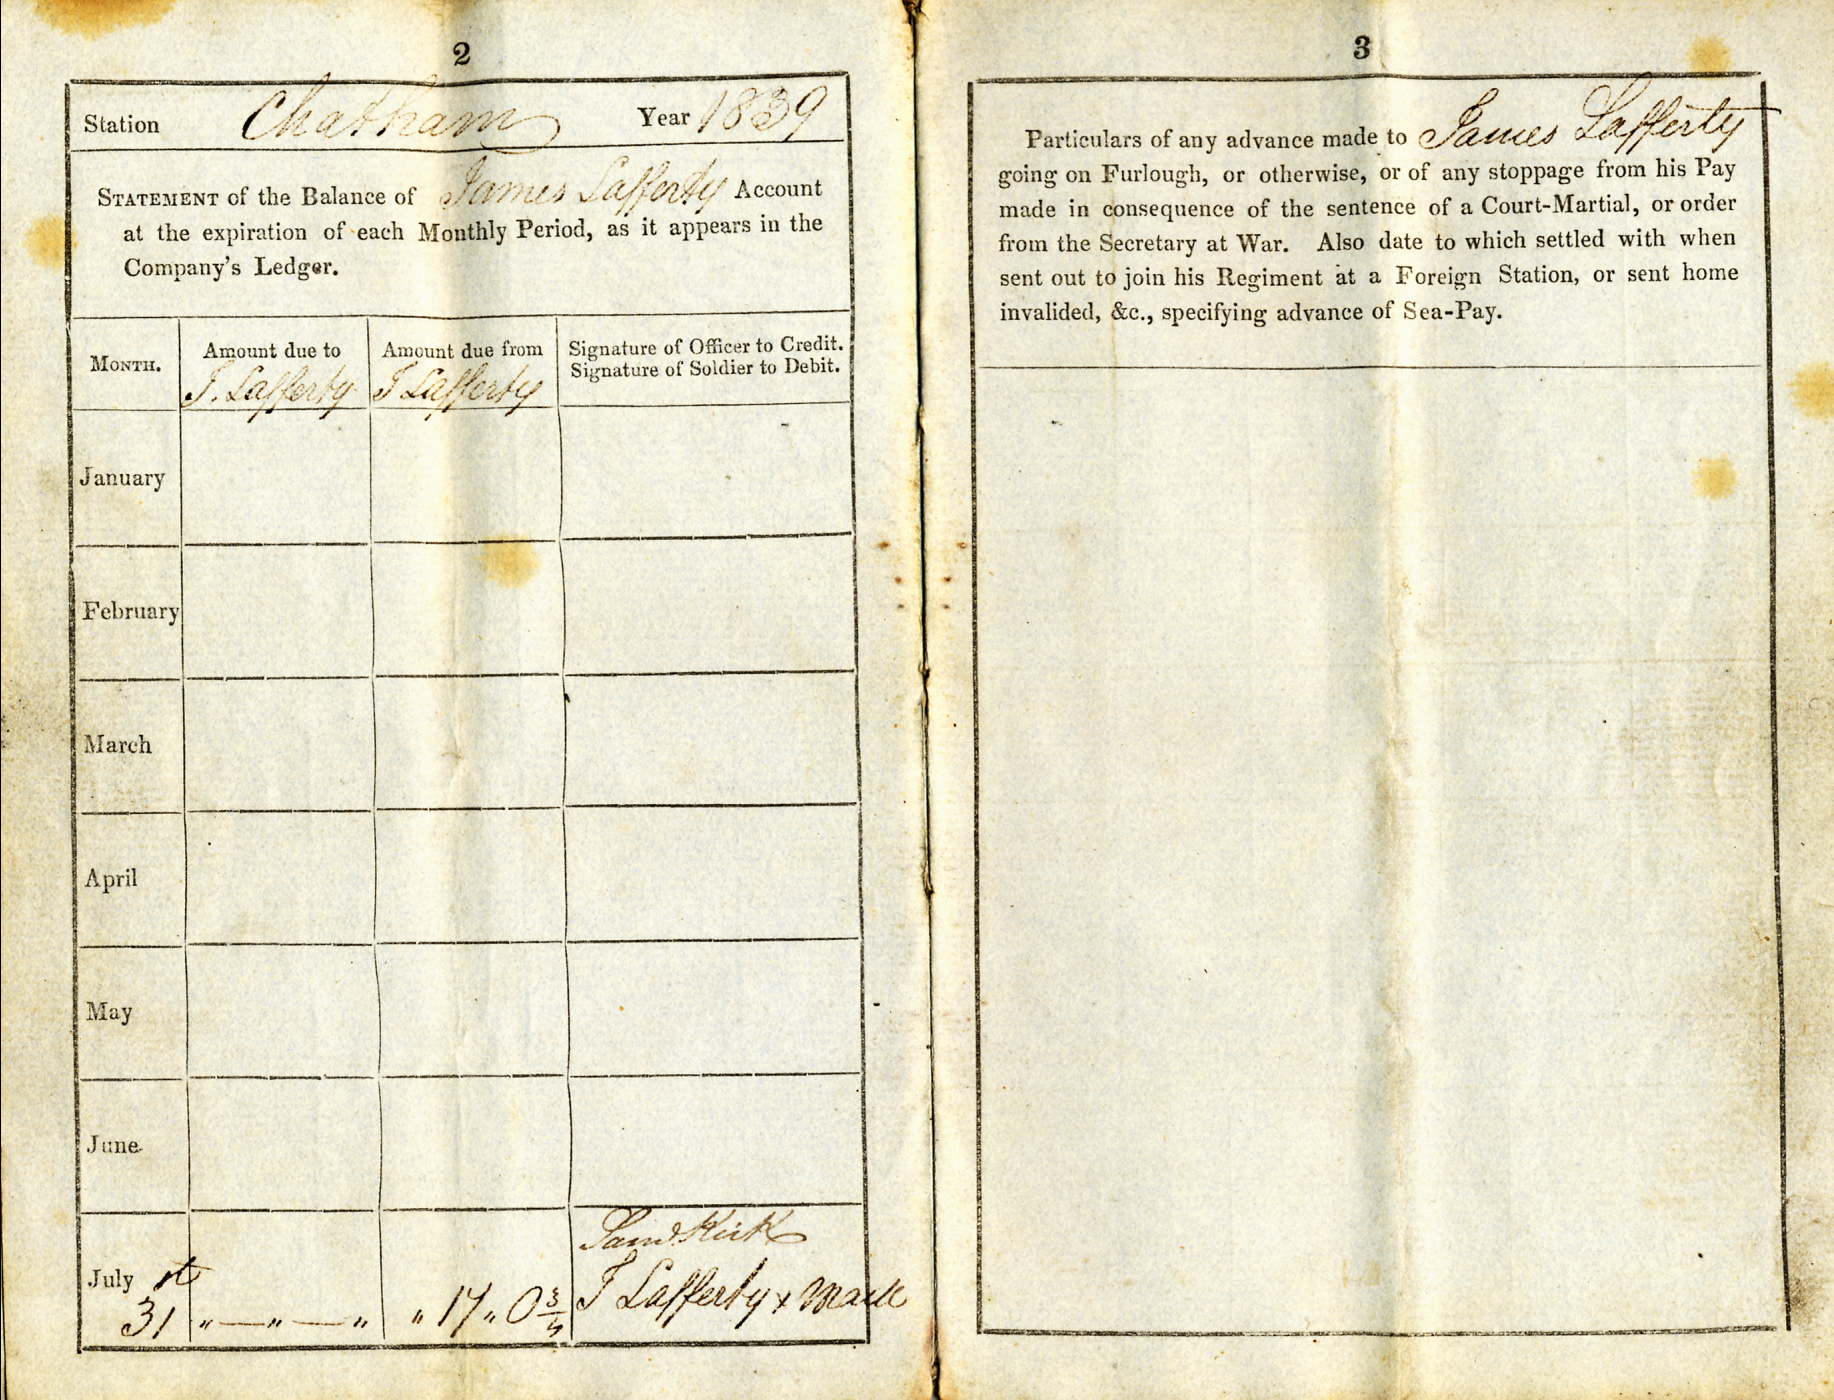 2
Station Chatham Year 1839
STATEMENT of the Balance of James Lafferty Account
at the expiration of each Monthly Period, as it appears in the
Company's Ledger.
MONTH.
Amount due to
J. Lafferty
Amount due from
J Lafferty
Signature of Officer to Credit.
Signature of Soldier to Debit.
January
February
March
April
May
June
July 31st
" — " — "
" 17 " 0 3/4
Kirk
J Lafferty x Mark
3
Particulars of any advance made to James Lafferty
going on Furlough, or otherwise, or of any stoppage from his Pay
made in consequence of the sentence of a Court-Martial, or order
from the Secretary at War. Also date to which settled with when
sent out to join his Regiment at a Foreign Station, or sent home
invalided, &c., specifying advance of Sea-Pay.